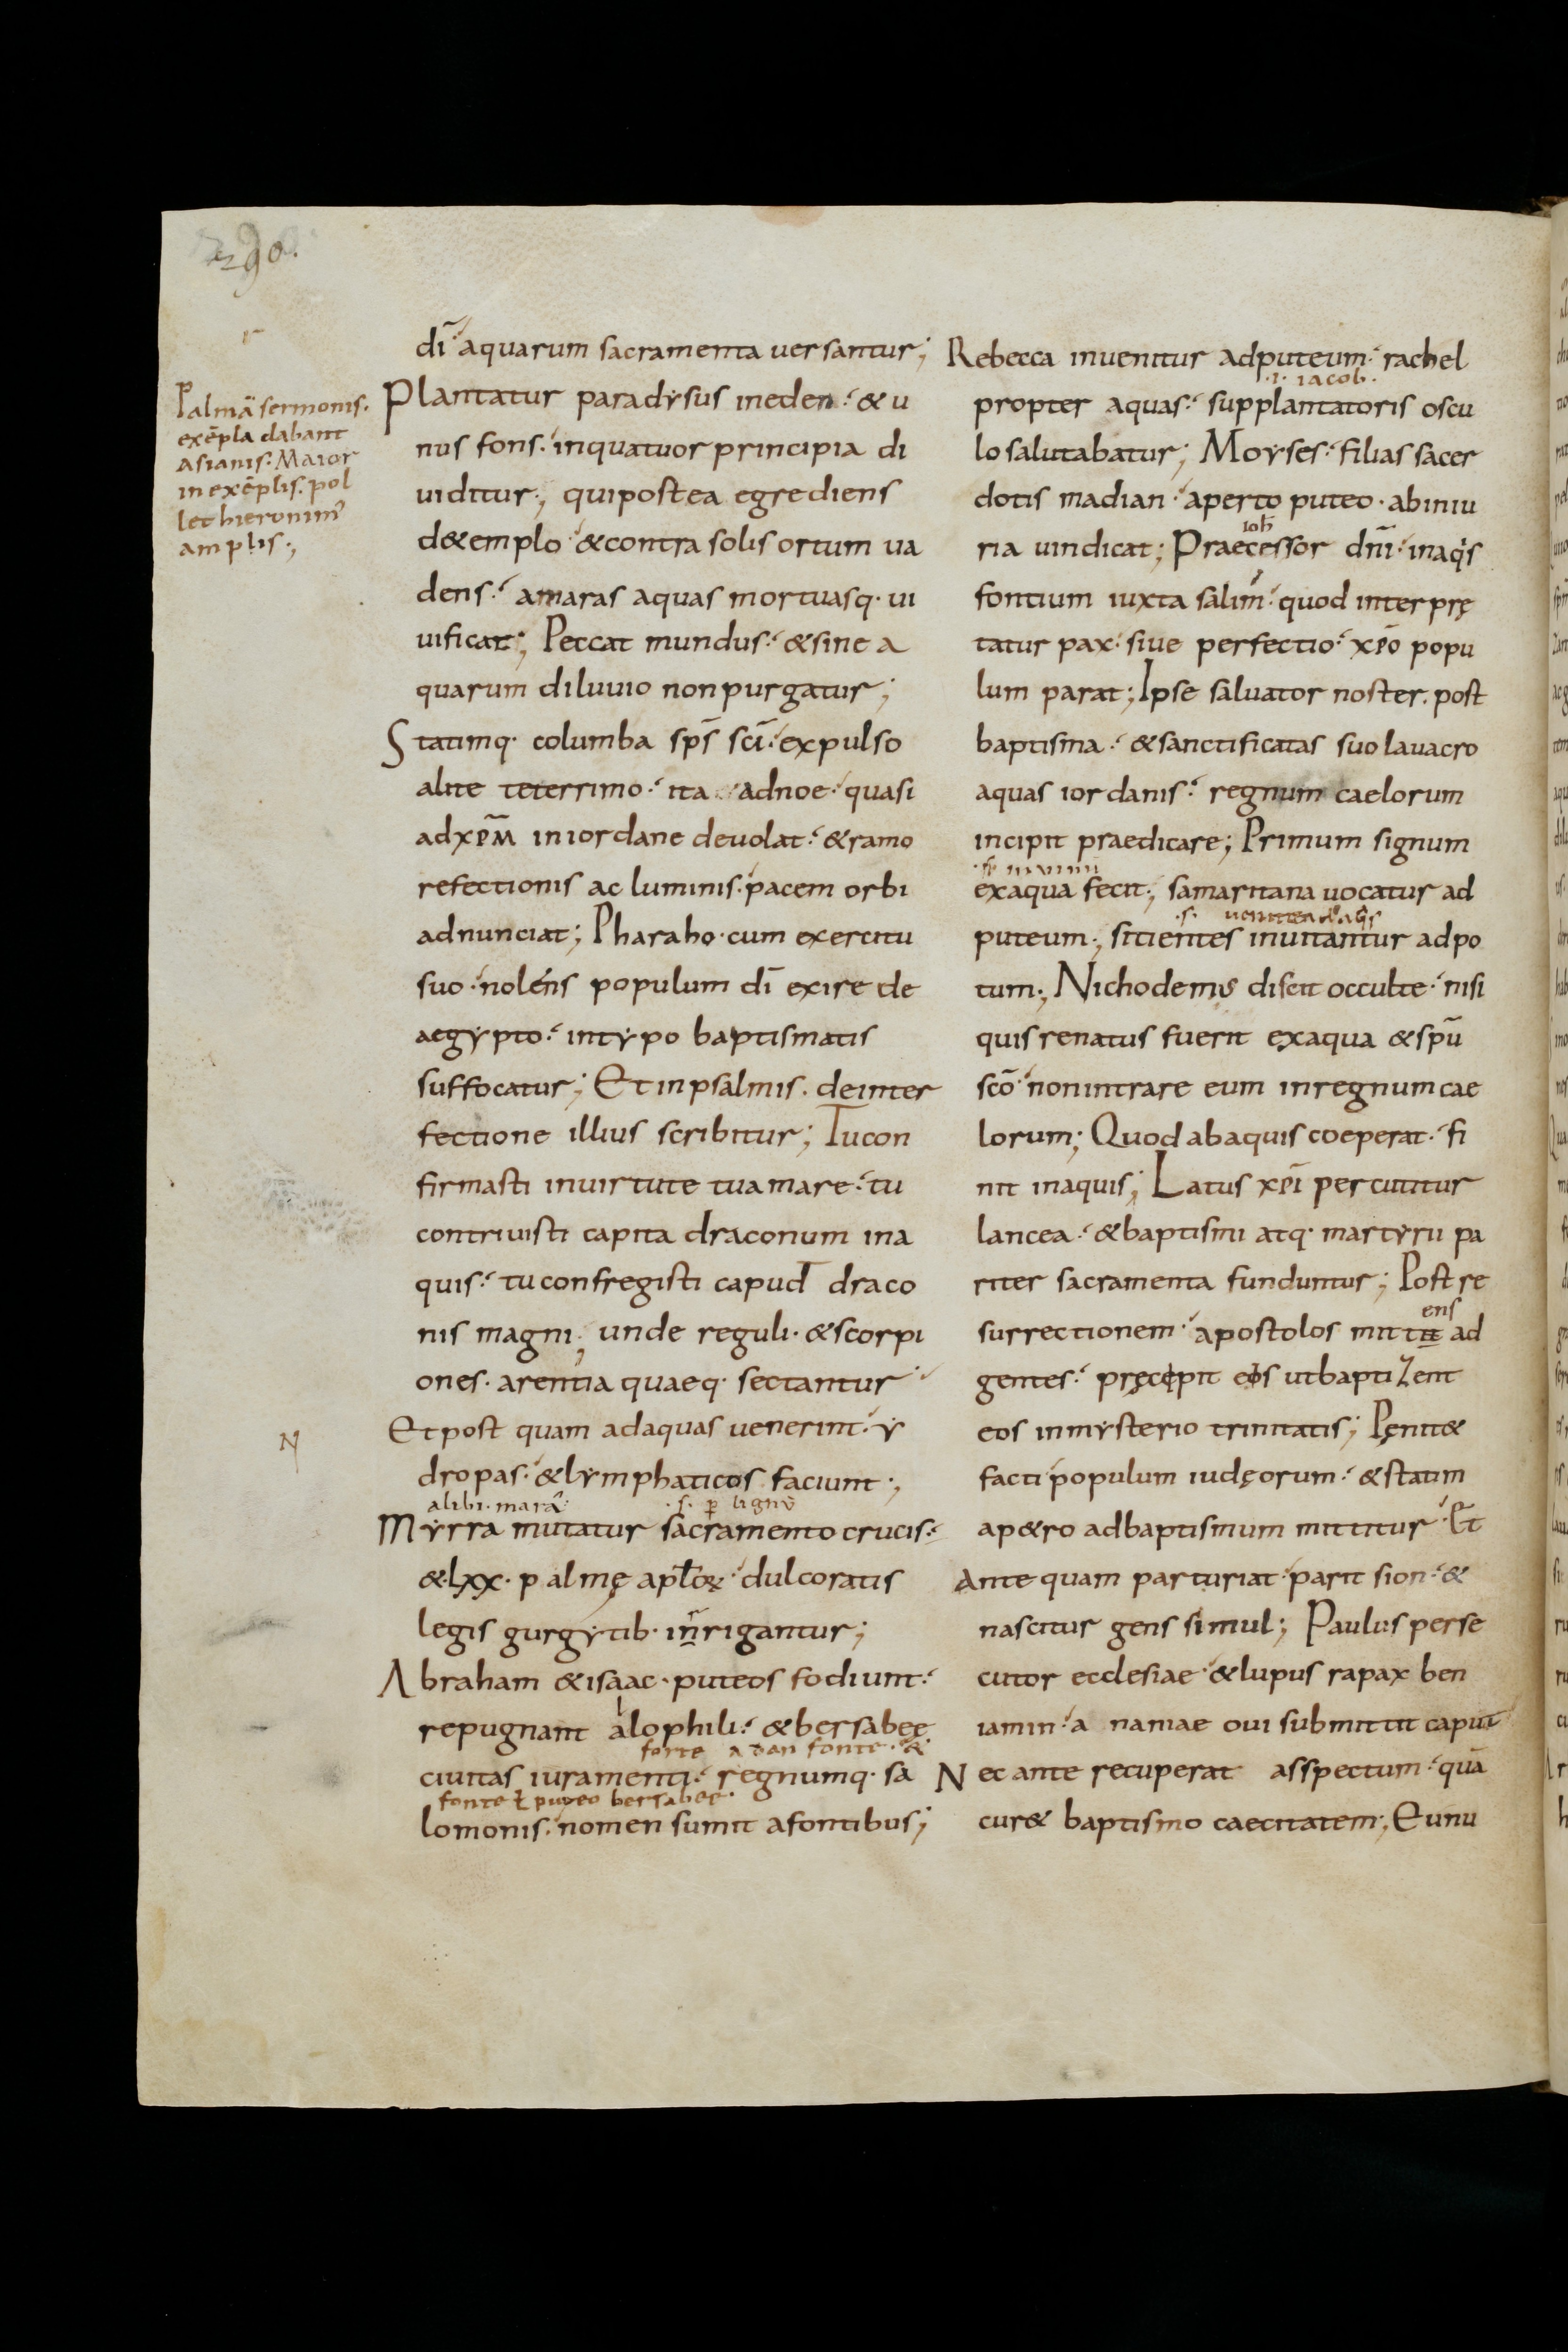 290.
Palmā sermonis.
exēpla dabant
asianis. Maior
in exēplis. pol
let hieronim᾽
amplis;
dī aquarum sacramenta versantur;
Plantatur paradysus ineden. & u
nus fons. inquatuor principia di
uiditur; quipostea egrediens
d&emplo &contra solis ortum ua
dens. amaras aquas mortuasq. ui
uificat; Peccat mundus. &sine a
quarum diluuio nonpurgatur;
Statimq. columba sp̄s sc̄i. expulso
alite teterrimo. ita adnoe. quasi
adxp̄m iniordane deuolat. &ramo
refectionis ac luminis. pacem orbi
adnunciat; Pharaho. cum exercitu
suo. nolens populum dī exire de
aegypto. intypo baptismatis
suffocatur; Et inpsalmis. deinter
fectione illius scribitur; Tu con
firmasti inuirtute tua mare. tu
contriuisti capita draconum ina
quis. tu confregisti capud draco
nis magni; unde reguli. &scorpi
ones. arentia quaeq. sectantur
Et post quam adaquas uenerint. y
dropas. &lymphaticos faciunt;
alibi. mara. .s. p ̄ lignū
Myrra mutatur sacramento crucis.
&.lxx. palmę apl̄oꝝ. dulcoratis
legis gurgytib. inrigantur;
Abraham &isaac. puteos fodiunt.
repugnant alophili. &bersabeę
forte adan fonte. &
ciuitas iuramenti. regnumq. sa
fonte ł puteo bersabeę.
lomonis. nomen sumit afontibus;
Rebecca inuenitur adputeum. rachel
.i. iacob.
propter aquas. supplantatoris oscu
lo salutabatur; Moyses. filias sacer
dotis madian. aperto puteo. abiniu
ioh̄
ria uindicat; Praecessor dn̄i. inaq̇s
fontium iuxta salim. quod interprę
tatur pax. siue perfectio. xp̄o popu
lum parat; Ipse saluator noster. post
baptisma. &sanctificatas suo lauacro
aquas iordanis. regnum caelorum
incipit praedicare; Primum signum
exaqua fecit; samaritana uocatur ad
puteum; sitientes inuitantur adpo
tum; Nichodemus discit occulte. nisi
quis renatus fuerit exaqua &sp̄u
sc̄o. nonintrare eum inregnum cae
lorum; Quod abaquis coeperat. fi
nit inaquis; Latus xp̄i percutitur
lancea. &baptismi atq. martyrii pa
riter sacramenta funduntur; Post re
ens
surrectionem. apostolos mittit ad
gentes. pręcepit eos utbaptizent
eos inmysterio trinitatis; Pęnit&
facti populum iudęorum. &statim
ap&ro adbaptismum mittitur. Et
Ante quam parturiat. parit sion. &
nascitur gens simul; Paulus perse
cutor ecclesiae. &lupus rapax ben
iamin. a naniae oui submittit caput
Nec ante recuperat asspectum. quā
cur& baptismo caecitatem; Eunu